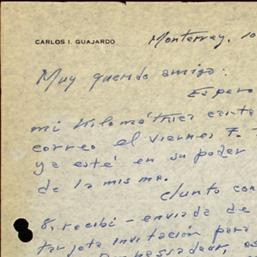 CARLOS I. GUAJARDO
Monterrey, 10
Muy querido amigo:
Espero
mi kilométrica carta
correo el viernes 7.
ya esté en su poder
de la misma.
Junto con
8, recibí - enviada de
tarjeta invitación para